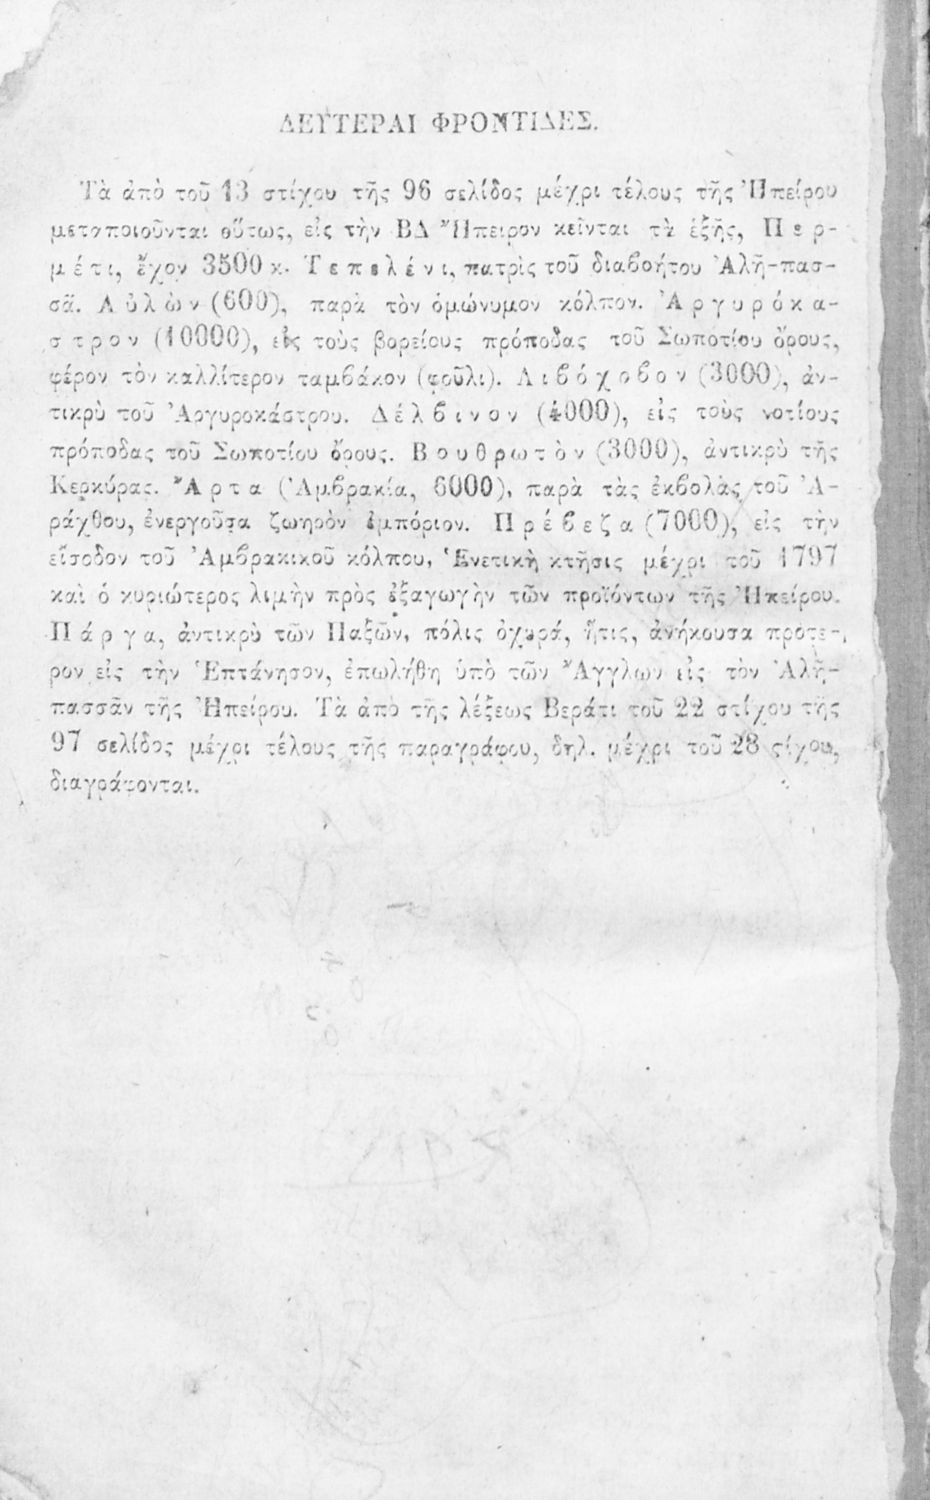 ΔΕΥΤΕΡΑΙ ΦΡΟΝΤΙΔΕΣ.
Τὰ ἀπὸ τοῦ 13 στίχου τῆς 96 σελίδος μέχρι τέλους τῆς Ἠπείρου
μεταποιοῦνται οὕτως, εἰς τὴν ΒΔ Ἤπειρον κεῖνται τὰ ἑξῆς, Περ-
μέτι, ἔχον 3500 κ. Τεπελένι, πατρὶς τοῦ διαβοήτου Ἀλῆ-πασ-
σᾶ. Αὐλὼν (600), παρὰ τὸν ὁμώνυμον κόλπον. Ἀργυρόκα-
στρον (10000), εἰς τοὺς βορείους πρόποδας τοῦ Σωποτίου ὄρους,
φέρον τὸν καλλίτερον ταμβάκον (φοῦλι). Λιβόχοβον (3000), ἀν-
τικρὺ τοῦ Ἀργυροκάστρου. Δέλβινον (4000), εἰς τοὺς νοτίους
πρόποδας τοῦ Σωποτίου ὄρους. Βουθρωτὸν (3000), ἀντικρὺ τῆς
Κερκύρας. Ἄρτα (Ἀμβρακία, 6000), παρὰ τὰς ἐκβολὰς τοῦ Ἀ-
ράχθου, ἐνεργοῦσα ζωηρὸν ἐμπόριον. Πρέβεζα (7000), εἰς τὴν
εἴσοδον τοῦ Ἀμβρακικοῦ κόλπου, Ἑνετικὴ κτῆσις μέχρι τοῦ 1797
καὶ ὁ κυριώτερος λιμὴν πρὸς ἐξαγωγὴν τῶν προϊόντων τῆς Ἠπείρου.
Πάργα, ἀντικρὺ τῶν Παξῶν, πόλις ὀχυρά, ἥτις, ἀνήκουσα πρότε-
ρον εἰς τὴν Ἑπτάνησον, ἐπωλήθη ὑπὸ τῶν Ἄγγλων εἰς τὸν Ἀλῆ-
πασσᾶν τῆς Ἠπείρου. Τὰ ἀπὸ τῆς λέξεως Βεράτι τοῦ 22 στίχου τῆς
97 σελίδος μέχρι τέλους τῆς παραγράφου, δηλ. μέχρι τοῦ 28 ϛίχου,
διαγράφονται.